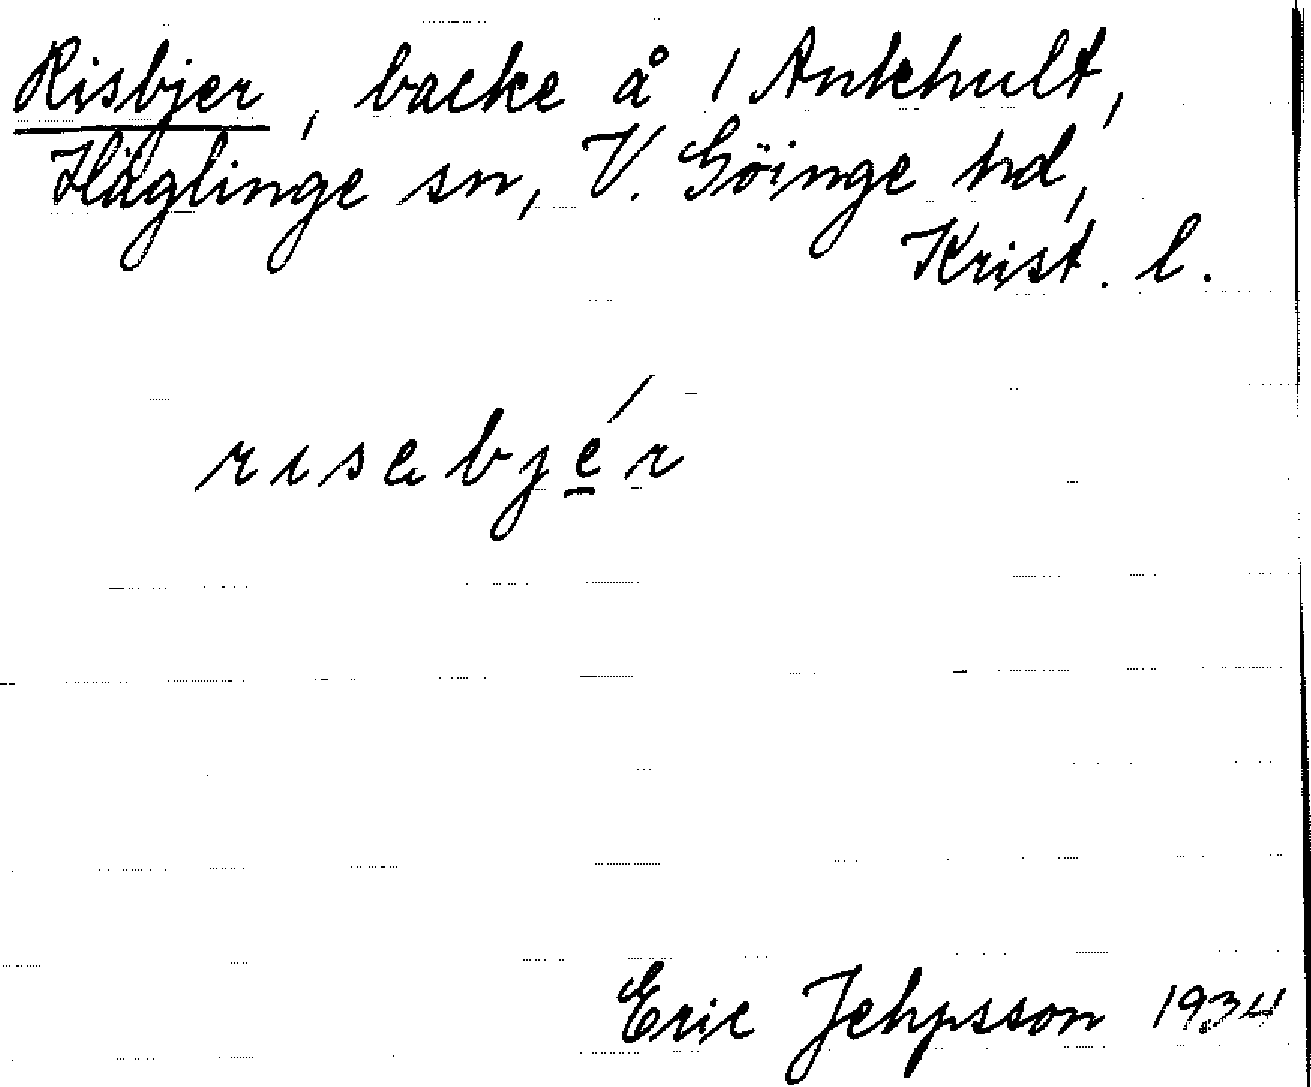 Risbjer, backe å 1 Ankhult,
Häglinge sn, V. Göinge hd,
Krist. l.
rısebjér
Eric Jehpsson 1934